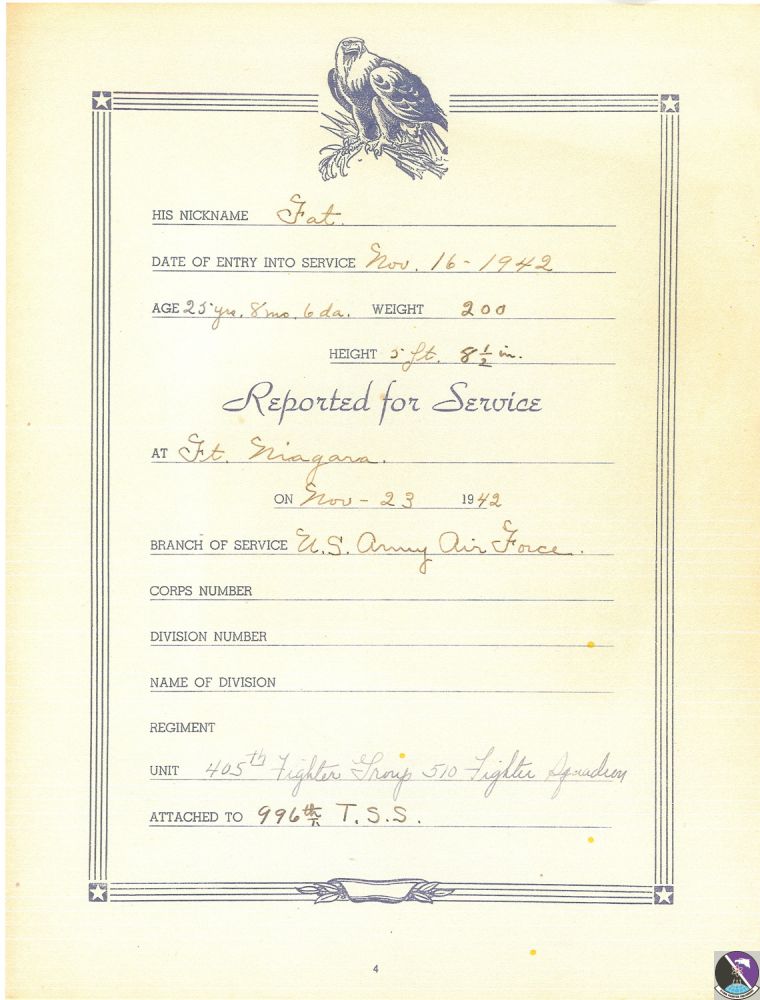 HIS NICKNAME Fat.
DATE OF ENTRY INTO SERVICE Nov. 16 - 1942
AGE 25 yrs. 8 mo. 6 da. WEIGHT 200
HEIGHT 5 ft. 8 1/2 in.
Reported for Service
AT Ft. Niagara.
ON Nov - 23 1942
BRANCH OF SERVICE U.S. Army Air Force.
CORPS NUMBER
DIVISION NUMBER
NAME OF DIVISION
REGIMENT
UNIT 405th Fighter Group 510 Fighter Squadron
ATTACHED TO 996th T.S.S.
4